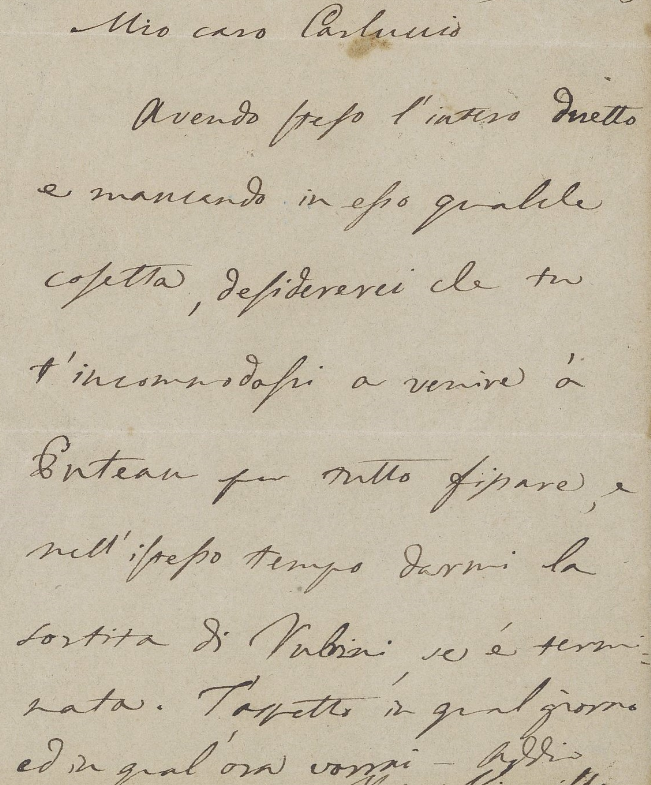 Mio caro Carluccio
Avendo steso l'intero duetto
e mancando in esso qualche
cosetta, desidererei che tu
t'incommodassi a venire à
Puteau per tutto fissare, e
nell'istesso tempo darmi la
sortita di Rubini, se é termi=
nata. T'aspetto in qual giorno
ed in qual'ora vorrai - Addio